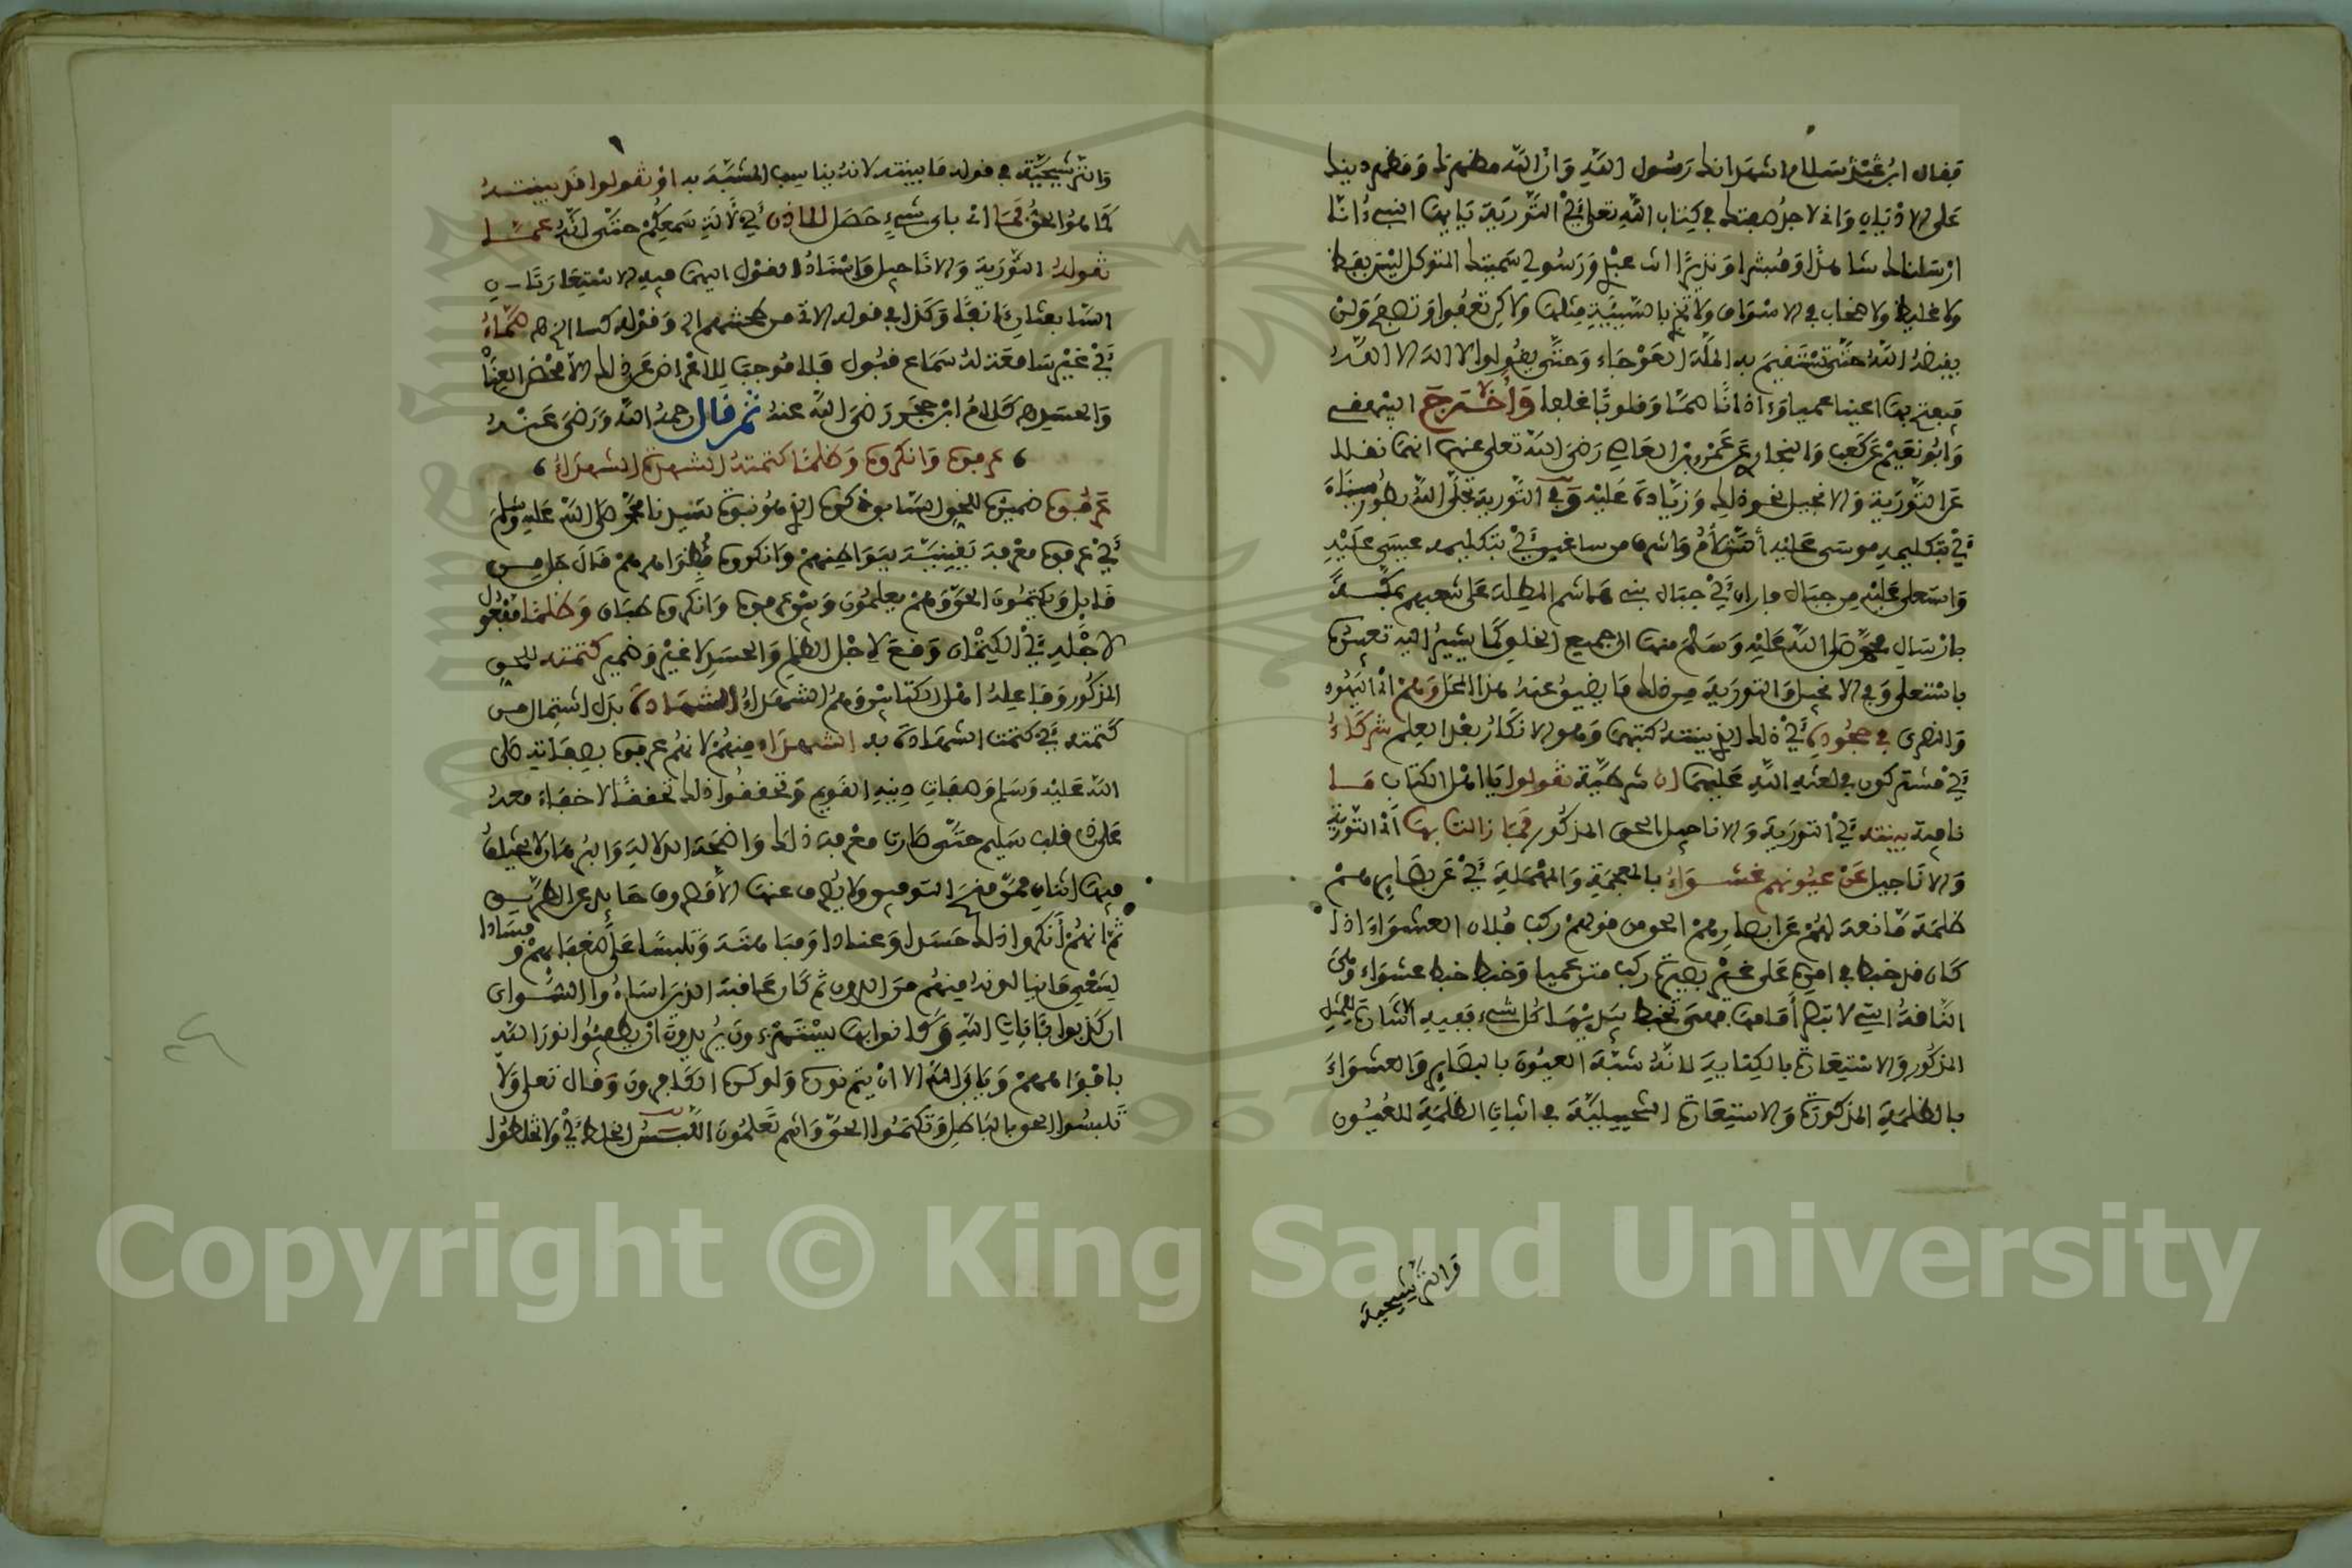 فقال ابن عبد السلام اشهد انك رسول الله وان الله مظهرك ومظهر دينك
على الاديان واني لاجد صفتك في كتاب الله تعلى أي التورية يايها النبيء انا
ارسلناك شاهدا ومبشرا ونذيرا انت عبدي ورسولي سميتك المتوكل ليس بفظ
ولا غليظ ولا صخاب في الاسواق ولا تجز بالسيئة مثلها ولاكن تعفوا وتصفح ولن
يقبضه الله حتى تستقيم به الملة العوجاء وحتى يقولوا لا اله الا الله
فيفتح بها اعينا عميا وءاذانا صما وقلوبا غلفا وأخرج البيهقي
وابو نعيم عن كعب والبخاري عن عمرو بن العاص رضي الله تعلى عنهم انهما نقلا
عن التورية والانجيل نحو ذلك وزيادة عليه وفي التورية تجلى الله بطور سيناء
أي بتكليمه موسى عليه السلام واشرق من ساعير أي بتكليمه عيسى عليه
واستعلى عليه من جبال فاران أي جبال بني هاشم المطلة على شعبهم بمكة
بارسال محمد صلى الله عليه وسلم منها الى جميع الخلق كما يشير اليه تعبيره
باستعلى وفي الانجيل والتورية من ذلك ما يضيق عنه هذا المحل وهم أي اليهود
والنصرى في جحوده أي ذلك الذي بينته كتبهم وهو الانكار بعد العلم شركاء
أي مشتركون في لعنة الله عليهما ان شرطية تقولوا يا اهل الكتاب ما
نافية بينته أي التورية والاناجيل الحق المذكور فما زالت بها أي التورية
والاناجيل عن عيونهم غشواء بالمعجمة والمهملة أي عن بصايرهم
ظلمة مانعة لهم عن ابصارهم الحق من قولهم ركب فلان العشواء اذا
كان قد خبط في امره على غير بصيرة ركب متن عميا وخبط خبط عشواء وهي
الناقة التي لا تبصر أمامها فهي تخبط بيديها كل شيء ففيه اشارة للمثل
المذكور والاستعارة بالكناية لانه شبه العيون بالبصاير والعشواء
بالظلمة المذكورة والاستعارة التخييلية في اثبات الظلمة للعيون
والترشيحية
والترشيحية في قوله ما بينته لانه يناسب المشبه به او تقولوا قد بينته
كما هو الحق فما أي باي شيء حصل للاذن أي لآلة سمعكم حتى انه عما
تقوله التورية والاناجيل واسناد القول اليهما فيه الاستعارتان
السابقتان ءانفا وكذا في قوله الاتي من طمشهم الخ وقوله كسا الخ صماء
أي غير سامعة له سماع قبول فلا موجب للاعراض عن ذلك الا محض العناد
والحسد اهـ كلام ابن حجر رضي الله عنه ثم قال رحمه الله ورضي عنه
عرفوه وانكروه وظلما كتمته الشهادة الشهداء
عرفوه ضميره للحق السابق ذكره الذي هو نبوة سيدنا محمد صلى الله عليه وسلم
أي عرفوه معرفة يقينية ببواطنهم وانكروه بظواهرهم قال جل من
قايل ويكتمون الحق وهم يعلمون وبين عرفوه وانكروه طباق وظلما مفعول
لاجله أي الكتمان وقع لاجل الظلم والحسد لا غير وضمير كتمته للحق
المذكور وفاعله اهل الكتابين وهم الشهداء الشهادة بدل اشتمال من
كتمته أي كتمت الشهادة به الشهداء منهم لانهم عرفوه بصفاته صلى
الله عليه وسلم وصفات دينه القويم وتحققوا ذلك تحققا لا خفاء معه
على ذي قلب سليم حتى صارت معرفة ذلك واضحة الدلالة والبرهان لا يختلف
فيها اثنان ممن منح التوفيق ولا يصرف عنها الا مصروف حايد عن الطريق
ثم انهم أنكروا ذلك حسدا وعنادا ومباهتة وتلبيسا على ضعفايهم وفسادا
لسعي ما ينالونه منهم من الدون ثم كان عاقبة الذين اساءوا السوأى
ان كذبوا بئايات الله وكانوا بها يستهزءون يريدون ان يطفئوا نور الله
بافواههم ويابى الله الا ان يتم نوره ولو كره الكافرون وقال تعلى ولا
تلبسوا الحق بالباطل وتكتموا الحق وانتم تعلمون اللبس الخلط أي ولا تخلطوا
Copyright © King Saud University
1957